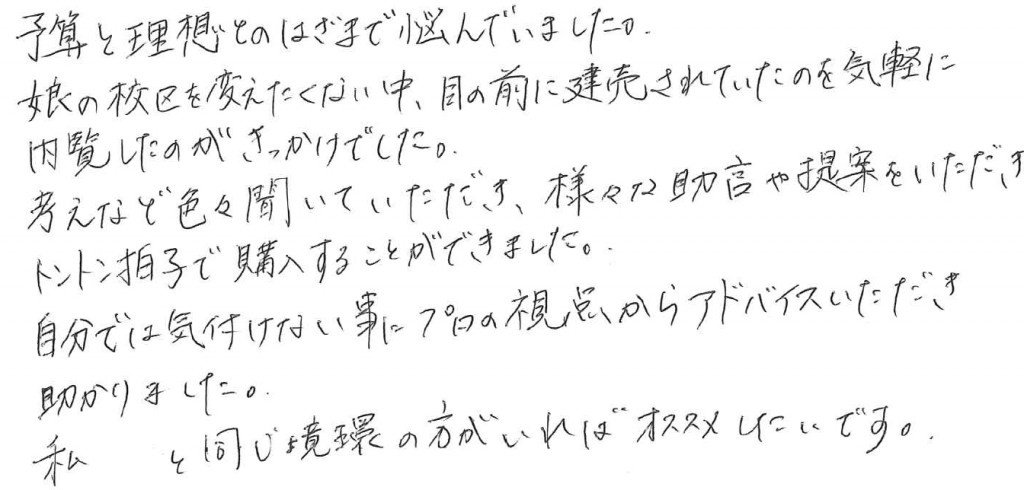 予算と理想とのはざまで悩んでいました。
娘の校区を変えたくない中、目の前に建売されていたのを気軽に
内覧したのがきっかけでした。
考えなど色々聞いていただき、様々な助言や提案をいただき
トントン拍子で購入することができました。
自分では気付けない事にプロの視点からアドバイスいただき
助かりました。
私 と同じ境環の方がいればオススメしたいです。